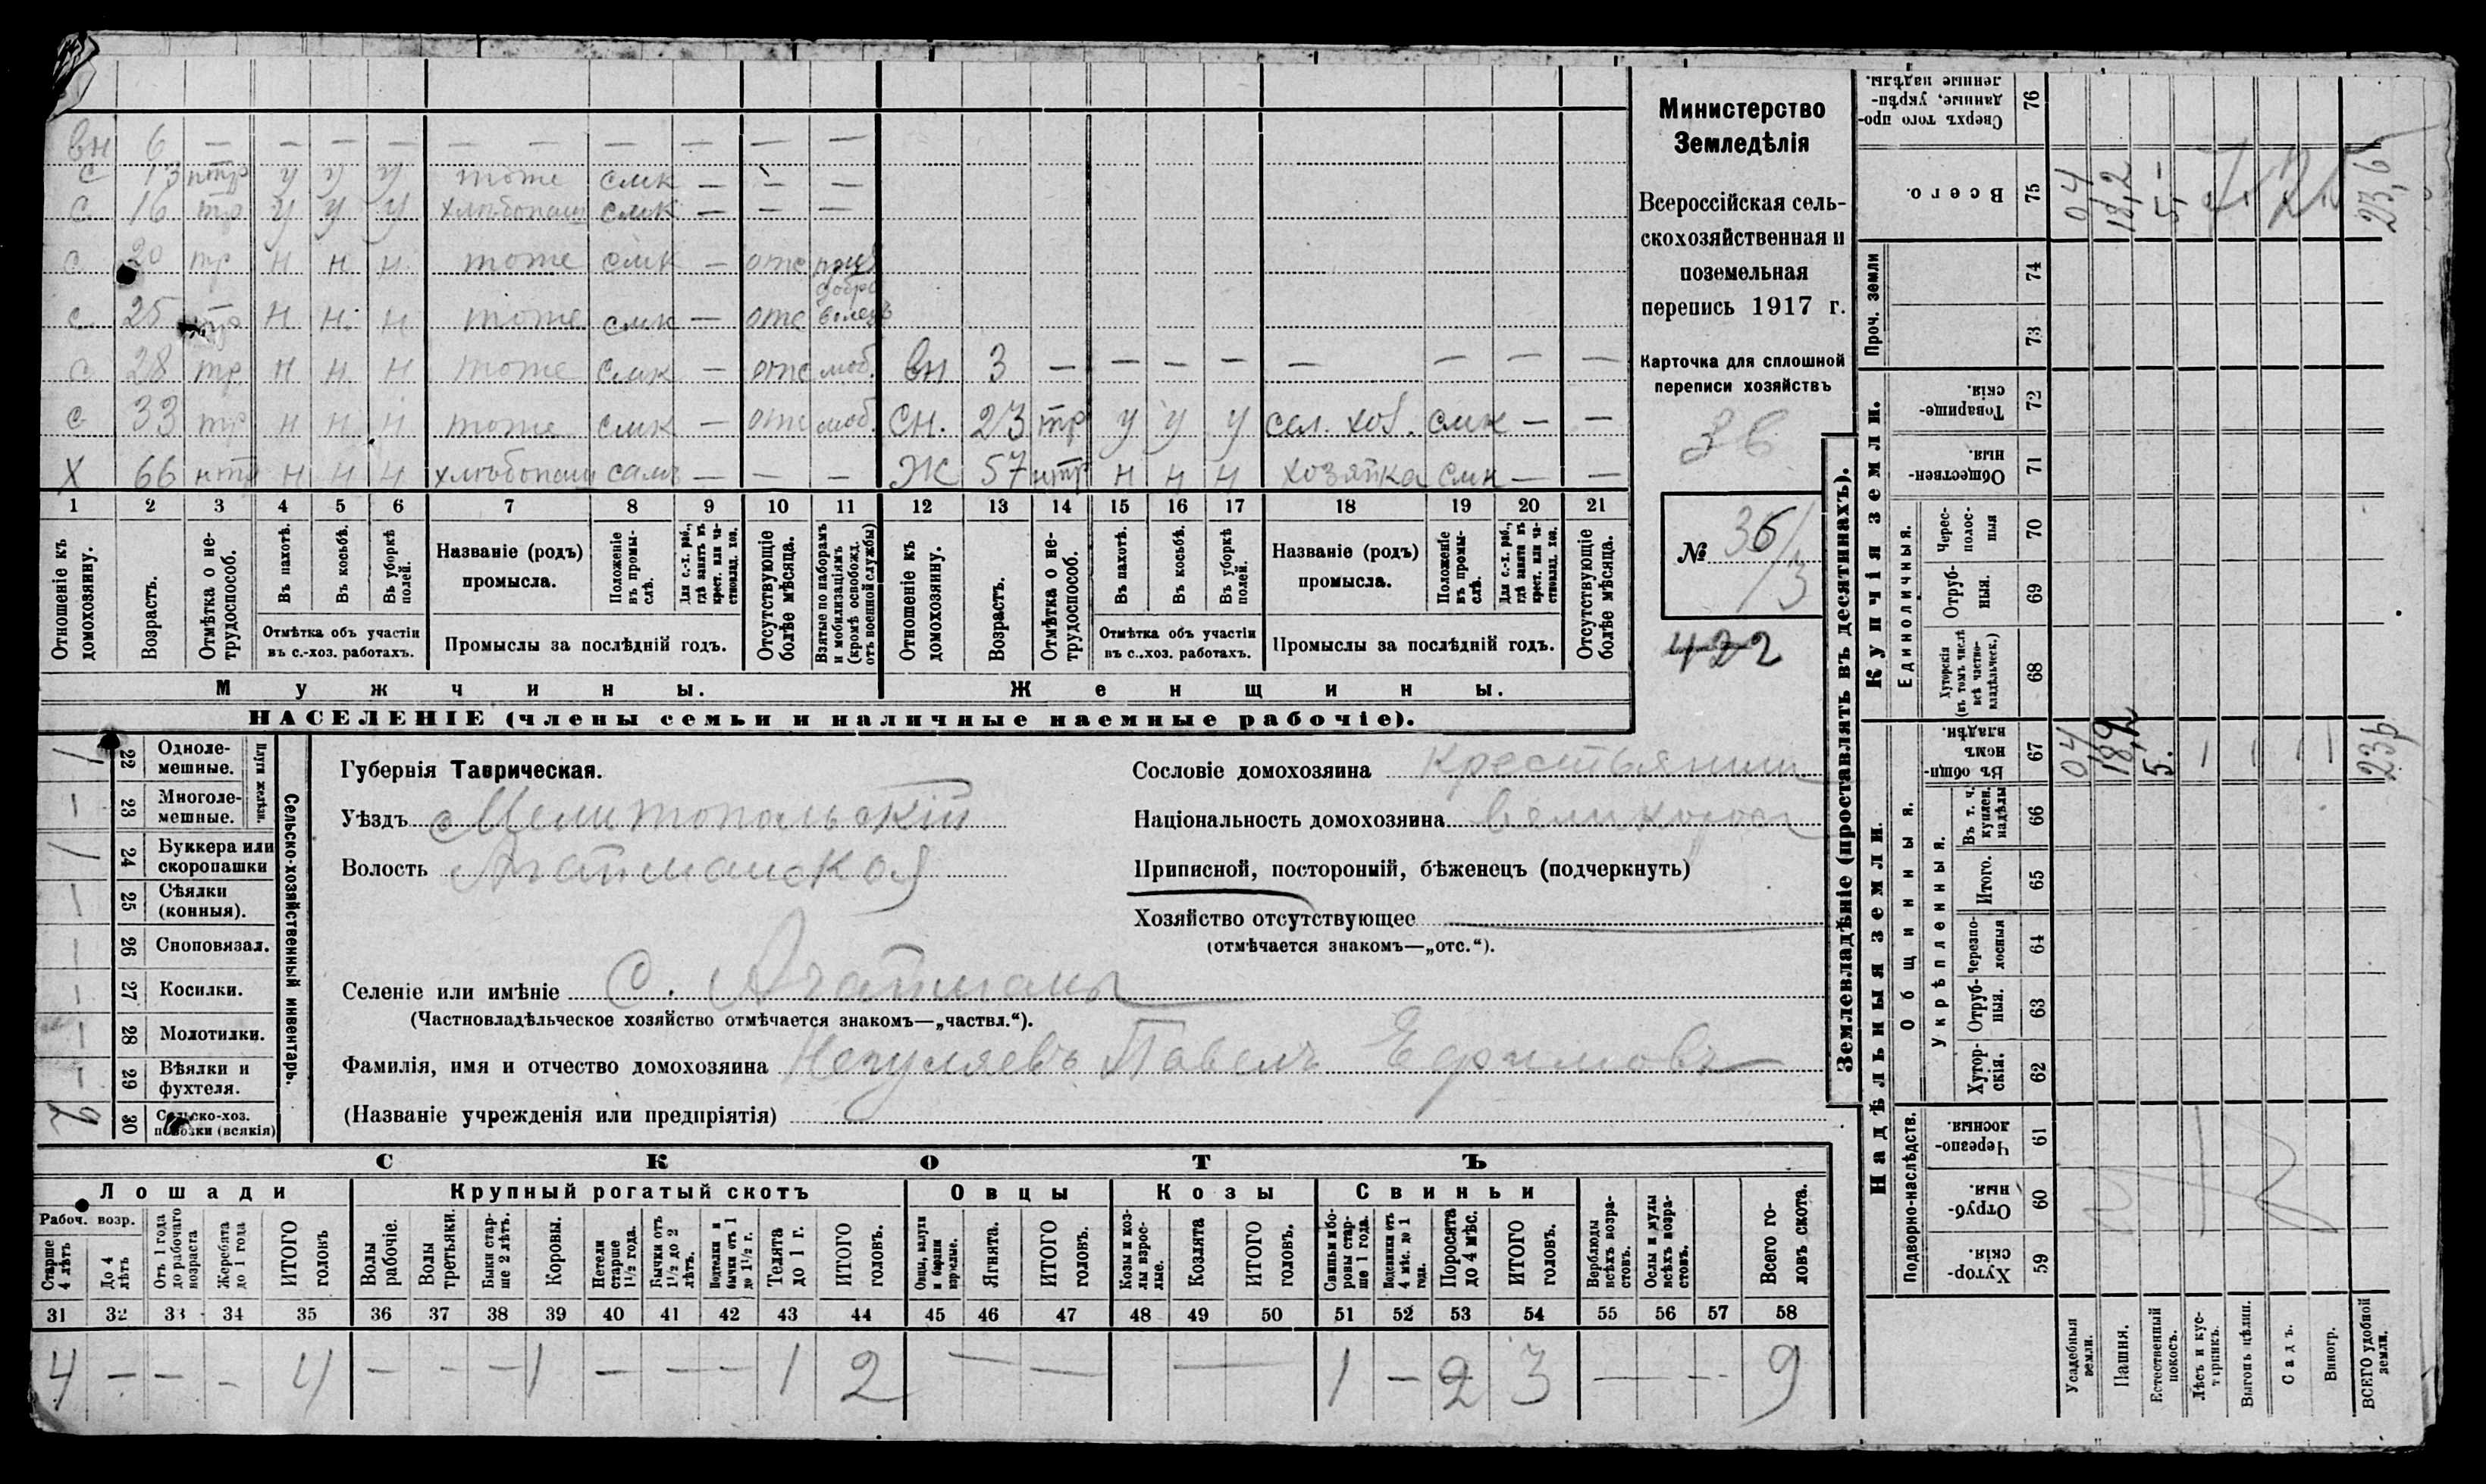 вн 6 — — — — — — — — — —
с 13 нтр у у у тоже смк — — —
с 16 тр у у у хлѣбопаш смк — — —
с 20 тр н н н тоже смк — отс
с 25 н н н тоже смк — отс добро
волецъ
с 28 тр н н н тоже смк — отс моб. вн 3 — — — — — — — —
с 33 тр н н н тоже смк — отс моб. сн. 23 тр у у у сел. хоз. смк — —
Х 66 нтр н н н хлѣбопаш самъ — — — Ж 57 нтр н н н хозяйка смк — —
1 2 3 4 5 6 7 8 9 10 11 12 13 14 15 16 17 18 19 20 21
Отношеніе къ домохозяину.
Возрастъ.
Отмѣтка о не-трудоспособ.
Въ пахотѣ.
Въ косьбѣ.
Въ уборкѣ полей.
Отмѣтка объ участіи
въ с.-хоз. работахъ.
Названіе (родъ)
промысла.
Положеніе въ промы-слѣ.
Для с.-х. раб., гдѣ занятъ въ крест. или ча-стновлад. хоз.
Промыслы за послѣдній годъ.
Отсутствующіе болѣе мѣсяца.
Взятые по наборамъ и мобилизаціямъ (кромѣ освобожд. отъ военной службы)
Отношеніе къ домохозяину.
Возрастъ.
Отмѣтка о не-трудоспособ.
Въ пахотѣ.
Въ косьбѣ.
Въ уборкѣ полей.
Отмѣтка объ участіи
въ с.-хоз. работахъ.
Названіе (родъ)
промысла.
Положеніе въ промы-слѣ.
Для с.-х. раб., гдѣ занята въ крест. или ча-стновлад. хоз.
Промыслы за послѣдній годъ.
Отсутствующіе болѣе мѣсяца.
Мужчины.
Женщины.
НАСЕЛЕНІЕ (члены семьи и наличные наемные рабочіе).
Министерство
Земледѣлія
Всероссійская сель-
скохозяйственная и
поземельная
перепись 1917 г.
Карточка для сплошной
переписи хозяйствъ
36
№ 36/3
422
Сельско-хозяйственный инвентарь.
Плуги желѣзн.
22 Одноле-
мешные.
23 Многоле-
мешные.
24 Буккера или
скоропашки
25 Сѣялки
(конныя).
26 Сноповязал.
27 Косилки.
28 Молотилки.
29 Вѣялки и
фухтеля.
30 Сельско-хоз.
повозки (всякія)
Губернія Таврическая.
Уѣздъ Мелитопольскій
Волость Ачайманская
Селеніе или имѣніе с. Агайманы
(Частновладѣльческое хозяйство отмѣчается знакомъ—„частвл.“).
Фамилія, имя и отчество домохозяина Непуляевъ Павелъ Ефимовъ
(Названіе учрежденія или предпріятія)
Сословіе домохозяина крестьянинъ
Національность домохозяина великоросъ
Приписной, посторонній, бѣженецъ (подчеркнуть)
Хозяйство отсутствующее
(отмѣчается знакомъ—„отс.“).
СКОТЪ
Лошади Крупный рогатый скотъ Овцы Козы Свиньи
Рабоч. возр.
Старше 4 лѣтъ
До 4 лѣтъ
Отъ 1 года до рабочаго возраста
Жеребята до 1 года
ИТОГО головъ
Волы рабочіе.
Волы третьяки.
Быки стар-ше 2 лѣтъ.
Коровы.
Нетели старше 1½ года.
Бычки отъ 1½ до 2 лѣтъ.
Подтелки и бычки отъ 1 до 1½ г.
Телята до 1 г.
ИТОГО головъ.
Овцы, валухи и бараны взрослые.
Ягнята.
ИТОГО головъ.
Козы и коз-лы взрос-лые.
Козлята
ИТОГО головъ.
Свиньи и бо-ровы стар-ше 1 года.
Подсвинки отъ 4 мѣс. до 1 года.
Поросята до 4 мѣс.
ИТОГО головъ.
Верблюды всѣхъ возра-стовъ.
Ослы и мулы всѣхъ возра-стовъ.
Всего го-ловъ скота.
31 32 33 34 35 36 37 38 39 40 41 42 43 44 45 46 47 48 49 50 51 52 53 54 55 56 57 58
4 — — — 4 — — — 1 — — — 1 2 — — — 1 — 2 3 — — 9
Землевладѣніе (проставлять въ десятинахъ).
Купчія земли.
Надѣльныя земли.
Сверхъ того про-данные, укрѣп-ленные надѣлы. 76
Всего. 75
04 18,2 5,- 23,6
Проч. земли 74 73
Товарище-скія. 72
Обществен-ныя. 71
Единоличныя.
Черес-полос-ныя 70
Отруб-ныя. 69
Хуторскія (въ томъ числѣ всѣ частно-владѣльческ.) 68
Общинныя.
Въ общин-номъ владѣн. 67
04 18,2 5. 23,6
Укрѣпленныя.
Въ т. ч. куплен. надѣлы 66
Итого. 65
Черезпо-лосныя 64
Отруб-ныя. 63
Хутор-скія. 62
Подворно-наслѣдств.
Черезпо-лосныя. 61
Отруб-ныя. 60
Хутор-скія. 59
Усадебныя земли.
Пашня.
Естественный покосъ.
Лѣсъ и кус-тарникъ.
Выгонъ цѣлин.
Садъ.
Виногр.
ВСЕГО удобной земли.